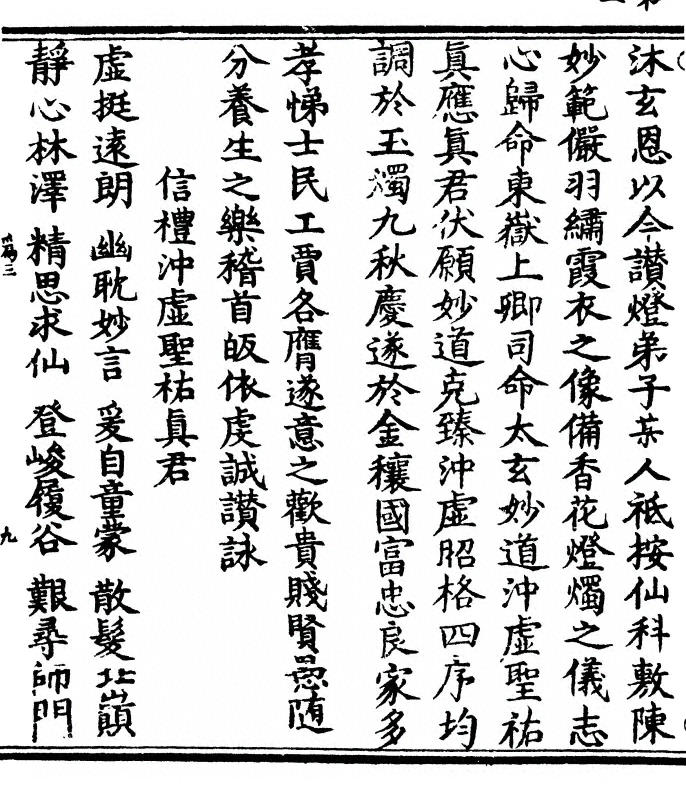 沐玄恩以今讃燈弟子某人祗按仙科敷陳
妙範儼羽繡霞衣之像備香花燈燭之儀志
心歸命東嶽上卿司命太玄妙道沖虛聖祐
眞應眞君伏願妙道克臻沖虛昭格四序均
調於玉燭九秋慶遂於金穰國富忠良家多
孝悌士民工賈各膺遂意之歡貴賤賢愚随
分養生之樂稽首皈依虔誠讃詠
信禮沖虛聖祐眞君
虛挺遠朗 幽耽妙言 爰自童蒙 散髮北巔
靜心林澤 精思求仙 登峻履谷 艱尋師門
三
九